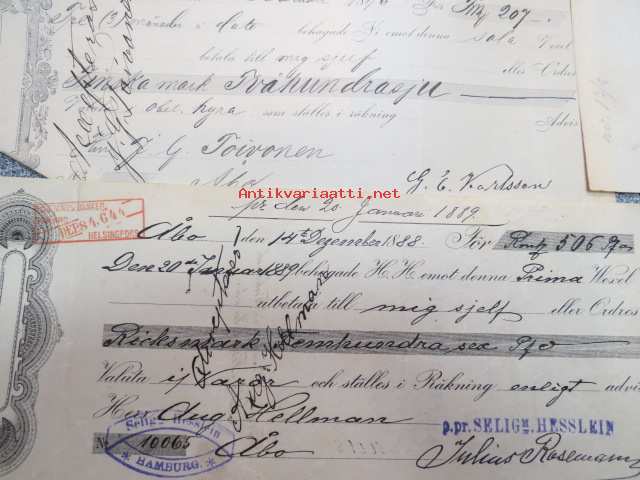 Tre (3) månader à dato behagade Ni emot denna sola Vexel
betala till mig sjelf eller Ordres
Finska mark Tvåhundrasju
obet. hyra som ställes i räkning Advis
G. Toivonen
Åbo
G. E. Karlsson
Antikvariaatti.net
per den 20 Januari 1889.
DEPS 4.644
HELSINGFORS
Åbo den 14 Dezember 1888. För Rmk 506
Den 20 Januar 1889 behagade H. H. emot denna Prima Wexel
utbetala till mig sjelf eller Ordres
Ricksmark Femhundra sex
Valuta i Varor och ställes i Räkning enligt advis
Herr Aug. Hellman
Accepteras
Aug. Hellman
p.pr. SELIGM. HESSLEIN
Selig. Hesslein
HAMBURG.
No. 10065 Åbo Julius Rosemann